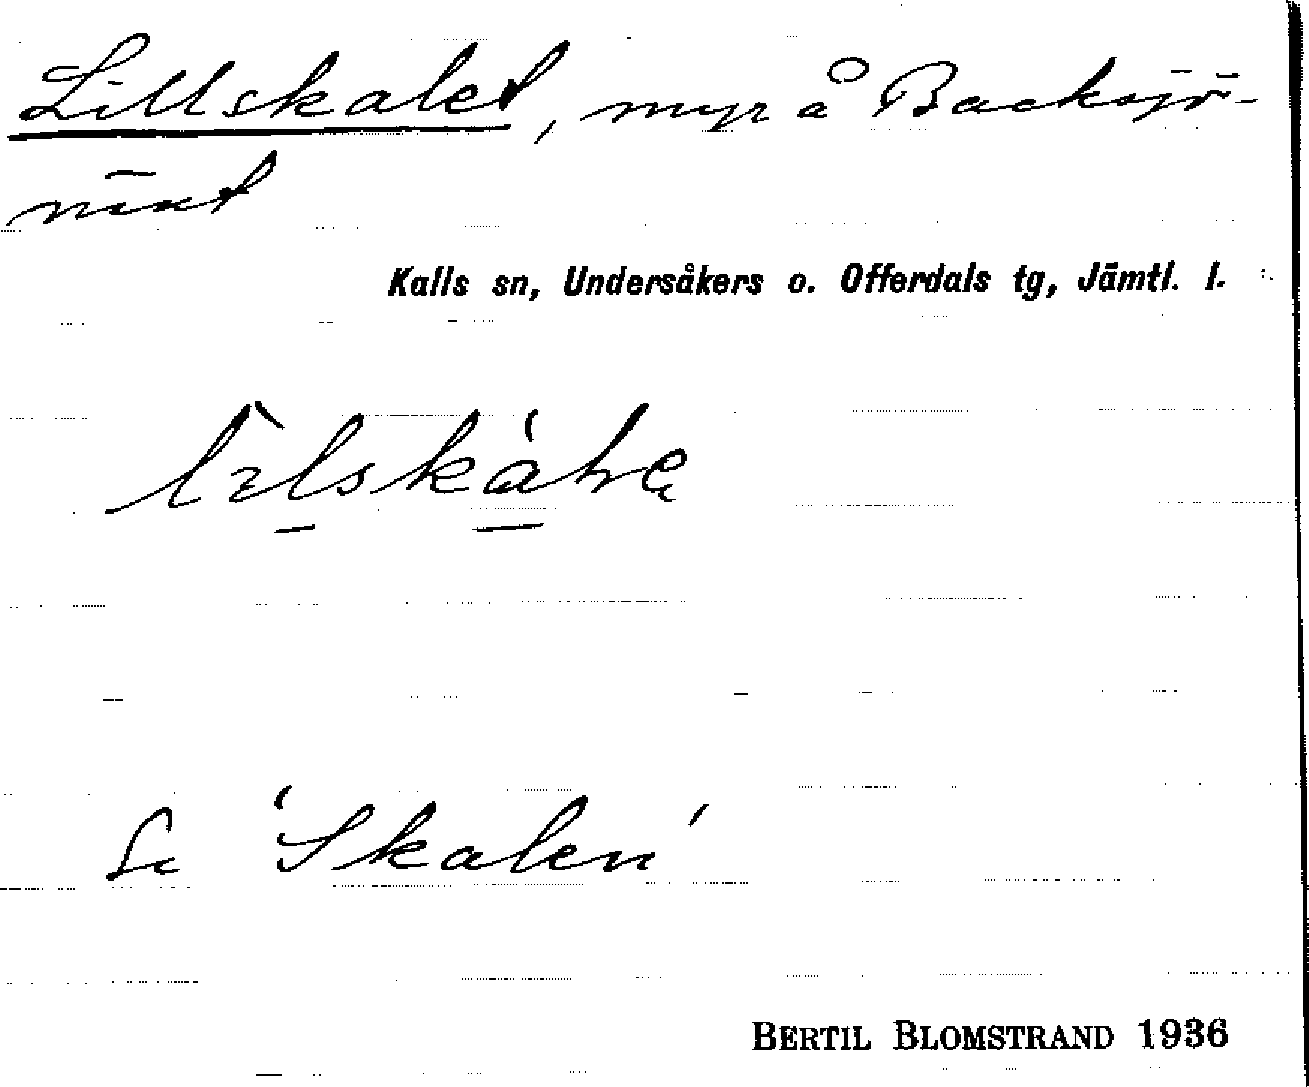 Lillskalet, myr å Backsjö-
näset
Kalls sn, Undersåkers o. Offerdals tg, Jämtl. l.
Se 'Skalen'
BERTIL BLOMSTRAND 1936